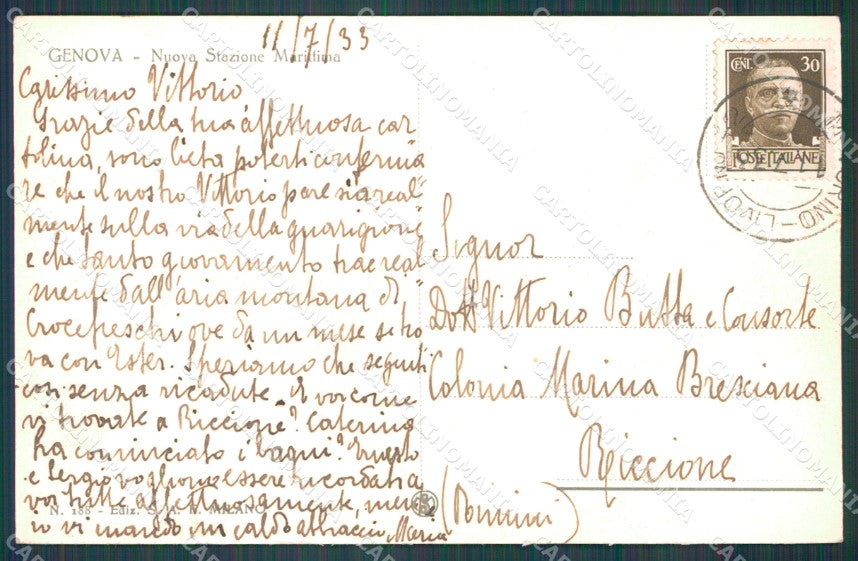 11/7/33
GENOVA - Nuova Stazione Marittima
Carissimo Vittorio
Grazie della tua affettuosa car
tolina, sono lieta poterti conferma
re che il nostro Vittorio pare sia real=
mente sulla via della guarigione
e che tanto giovamento trae real
mente dall'aria montana di
Crocefieschi ove da un mese si tro
va con Ester. Speriamo che seguiti
così senza ricadute. E voi come
vi trovate a Riccione? Caterina
ha cominciato i bagni? Ernesto
e Sergio vogliono essere ricordati a
voi tutti affettuosamente, men
io vi mando un caldo abbraccio, Maria
N. 188 - Ediz. S. A. F. MILANO
CENT. 30
POSTE ITALIANE
TORINO-LIVORNO
Signor
Dott Vittorio Butta e Consorte
Colonia Marina Bresciana
Riccione
(Rimini)
CARTOLINOMANIA